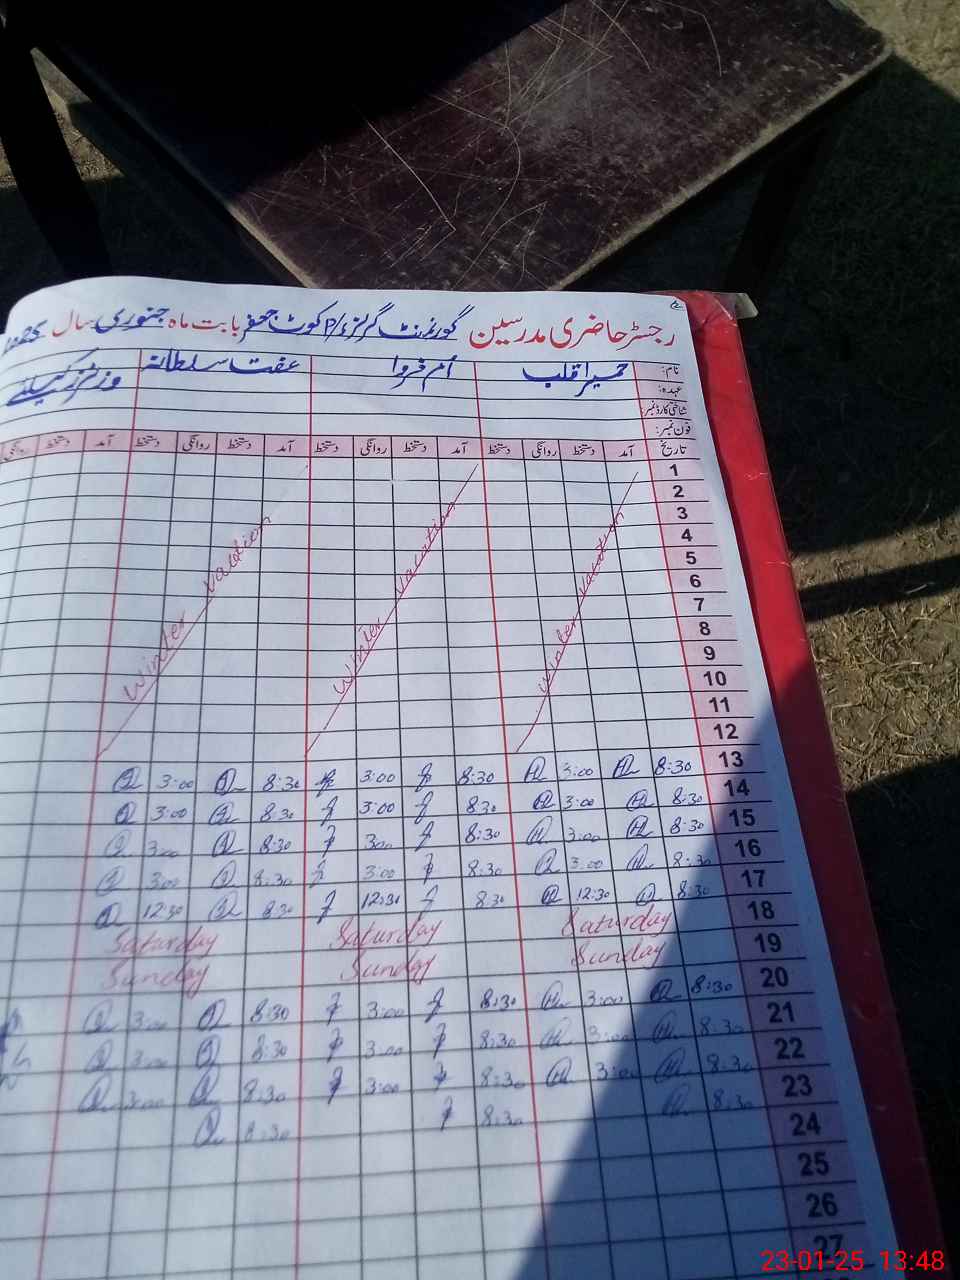 رجسٹر حاضری مدرسین گورنمنٹ گرلز P/ کوٹ بابت ماہ جنوری سال 2025
نام: حمیرا قلب ام فروا عفت سلطانہ
عہدہ:
شناختی کارڈ نمبر:
فون نمبر:
تاریخ آمد دستخط روانگی دستخط آمد دستخط روانگی دستخط آمد دستخط روانگی دستخط آمد دستخط روانگی
1
2
3
4
5
6
7
8
9
10
11
12
Winter vacation Winter vacation Winter vacation
13 8:30 3:00 8:30 3:00 8:30 3:00
14 8:30 3:00 8:30 3:00 8:30 3:00
15 8:30 3:00 8:30 3:00 8:30 3:00
16 8:30 3:00 8:30 3:00 8:30 3:00
17 8:30 12:30 8:30 12:30 8:30 12:30
18 Saturday Saturday Saturday
19 Sunday Sunday Sunday
20 8:30 3:00 8:30 3:00 8:30 3:00
21 8:30 3:00 8:30 3:00 8:30 3:00
22 8:30 3:00 8:30 3:00 8:30 3:00
23 8:30 8:30 8:30
24
25
26
27
23-01-25 13:48